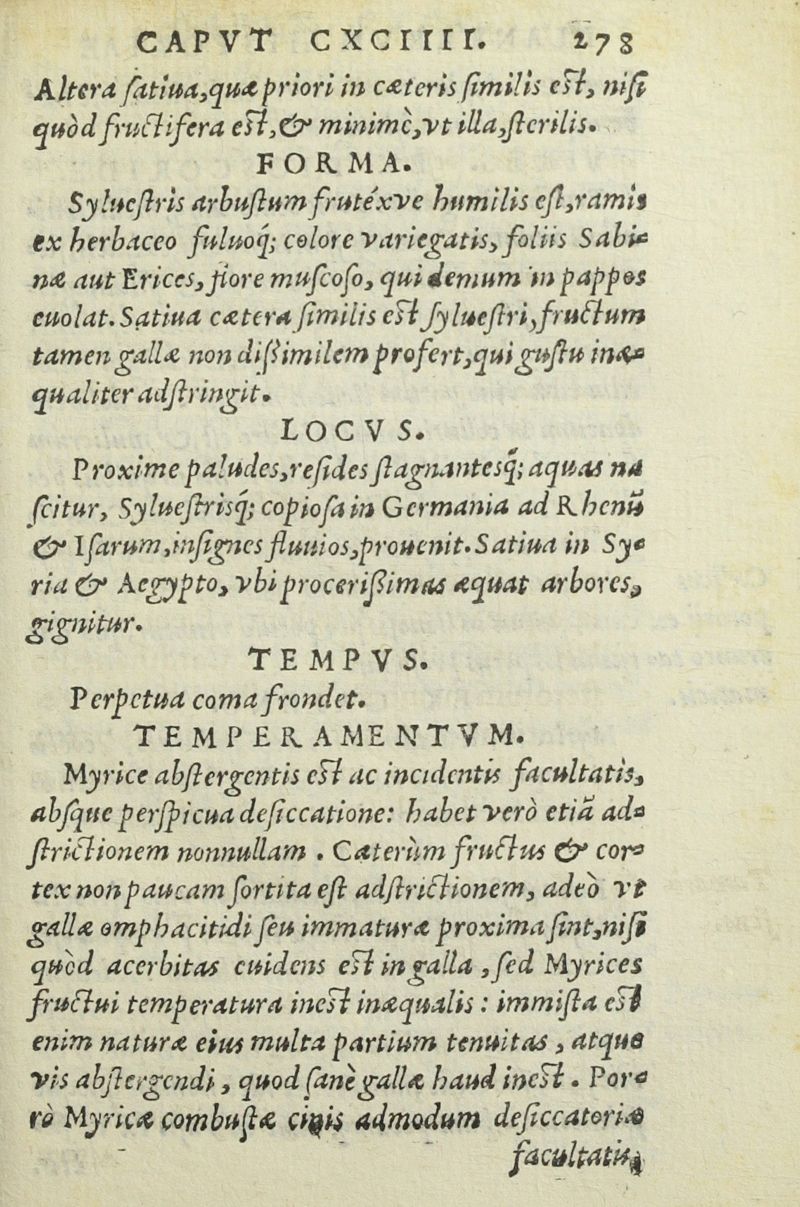 CAPVT CXCIIII. 278
Altera ſatiua, quæ priori in cæteris ſimilis est, niſi
quòd fructifera est, & minimè, vt illa, ſterilis.
FORMA.
Sylueſtris arbuſtum frutéxve humilis eſt, ramis
ex herbaceo fuluoq́; colore variegatis, foliis Sabi-
næ aut Erices, flore muſcoſo, qui demum in pappos
euolat. Satiua cætera ſimilis est ſylueſtri, fructum
tamen gallæ non diſſimilem profert, qui guſtu inæ-
qualiter adſtringit.
LOCVS.
Proxime paludes, reſides ſtagnantesq́; aquas na
ſcitur, Sylueſtrisq́; copioſa in Germania ad Rhenū
& Iſarum, inſignes fluuios, prouenit. Satiua in Sy-
ria & Aegypto, vbi proceriſſimas æquat arbores,
gignitur.
TEMPVS.
Perpetua coma frondet.
TEMPERAMENTVM.
Myrice abſtergentis est ac incidentis facultatis,
abſque perſpicua deſiccatione: habet verò etiā ad-
ſtrictionem nonnullam. Cæterùm fructus & cor-
tex non paucam ſortita eſt adſtrictionem, adeò vt
gallæ omphacitidi ſeu immaturæ proxima ſint, niſi
quòd acerbitas euidens est in galla, ſed Myrices
fructui temperatura inest inæqualis: immiſta est
enim naturæ eius multa partium tenuitas, atque
vis abſtergendi, quod ſanè gallæ haud inest. Por-
rò Myricæ combuſtæ cinis admodum deſiccatoriæ
facultatis,